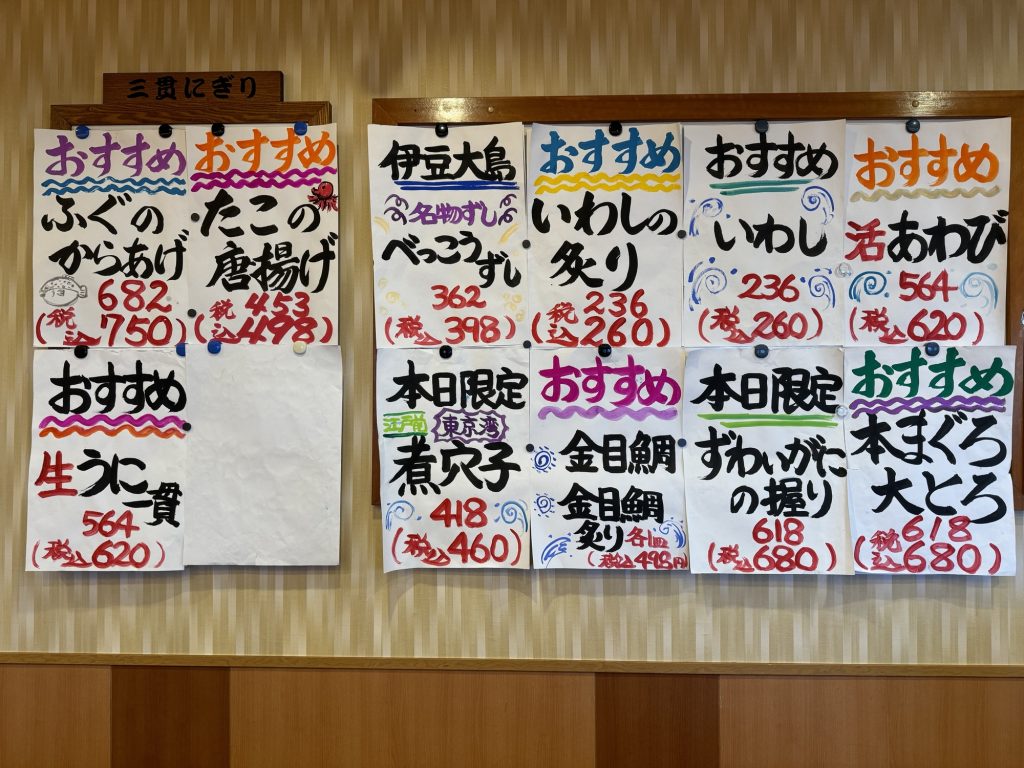 三貫にぎり
おすすめ
ふぐの
からあげ
682
(税込750)
おすすめ
たこの
唐揚げ
453
(税込498)
おすすめ
生うに
一貫
564
(税込620)
伊豆大島
名物ずし
べっこう
ずし
362
(税込398)
おすすめ
いわしの
炙り
236
(税込260)
おすすめ
いわし
236
(税込260)
おすすめ
活あわび
564
(税込620)
本日限定
江戸前
東京湾
煮穴子
418
(税込460)
おすすめ
金目鯛
金目鯛
炙り 各1皿
(税込498円)
本日限定
ずわいがに
の握り
618
(税込680)
おすすめ
本まぐろ
大とろ
618
(税込680)